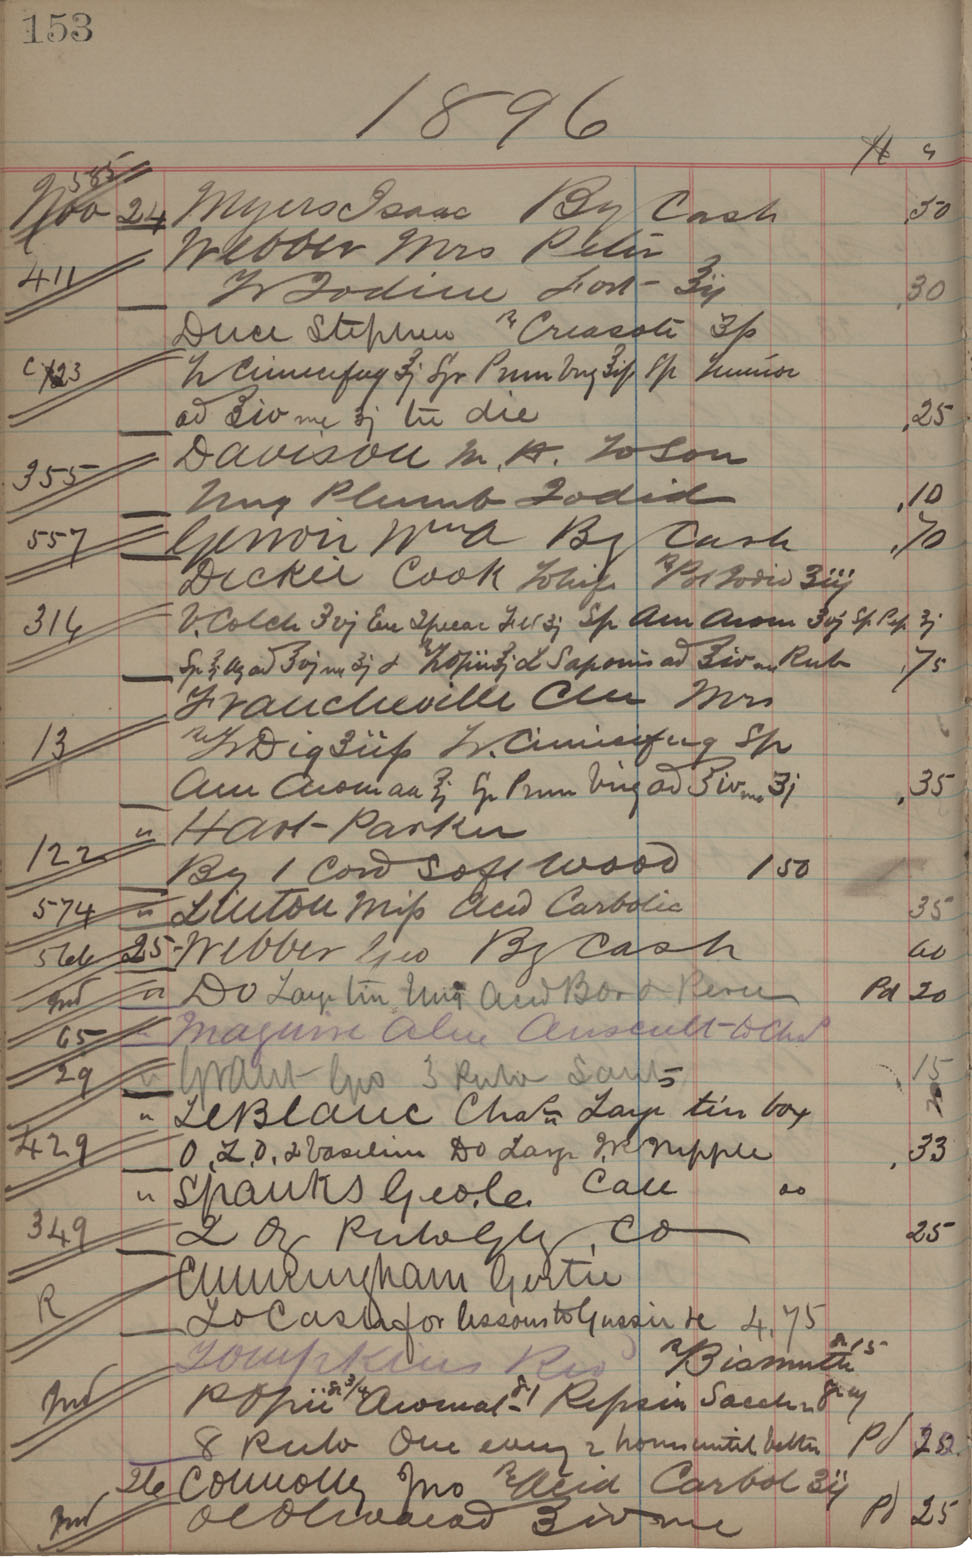 153
1896
585
Nov 24 Myers Isaac By Cash .50
Webber Mrs Peter
411 Tr Iodine Fort ʒij .30
Duce Stephen ℞ Creasote ʒfs
C 123 Tr Cimicifug ʒj Syr Prun Virg Sp
ad ℥iv me ʒj ter die .25
Davison M. H. To Son
355 Ung Plumb Iodid .10
557 Wm A By Cash .70
Dickie Cook Wife ℞ Pot Iodid ʒiij
316 V. Colch ʒvj Ext Ipecac Fld ʒj Sp Am Arom ʒvj Sp ʒj
ad ℥vj me ʒj & Tr Opii ʒj L Saponis ad ℥iv me Rub .75
Francheville Clem Mrs
13 ℞ Tr Dig ʒiifs Tr. Cimicifug Sp
Am Arom aa ʒj Syr Prun Virg ad ℥iv me ʒj .35
" Hart Parker
122 By 1 Cord Soft Wood 1 50
574 " Linton Miss Acid Carbolic 35
566 25 Webber Geo By Cash 60
Ind " Do Large tin Ung Acid Bor & Peru Pd 20
65 " Maguire Alex Auscult
29 " Grant Geo 3 Pulv Sant .15
" LeBlanc Chas Large tin box
429 O. Z. O. & Vaseline Do Large Nipple .33
" Spanks Geo. C. Call 00
349 2 Oz Pulv Gly Co 25
Cunningham Gertie
R To Cash for lessons to Gussie &c 4.75
Tompkins Rev ℞ Bismuth gr 15
Ind P Opii gr 3/4 Aromat gr 1 Pepsin Sacch
8 Pulv One every 2 hours until better Pd
26 Connolly Jno ℞ Acid Carbol ʒij
Ind Ol Olivae ad ℥iv me Pd 25